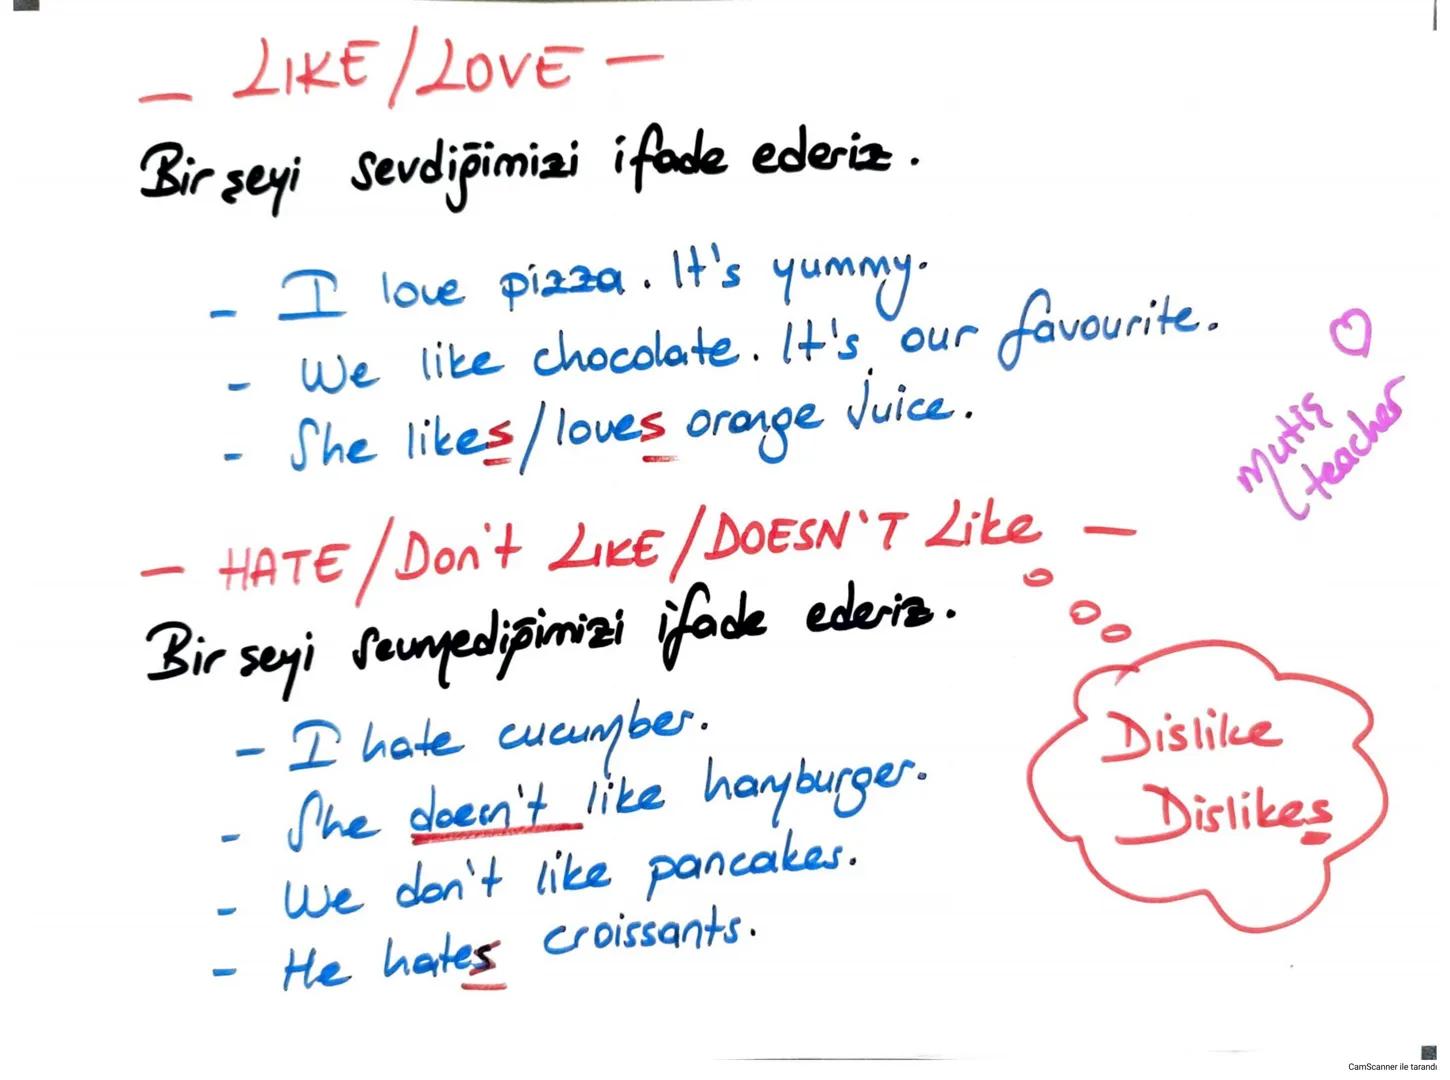 - LIKE/LOVE -
Bir şeyi sevdiğimizi ifade ederiz.
- I love pizza. It's yummy.
- We like chocolate. It's our favourite.
- She likes/loves orange juice.
mutiş
teacher
- HATE/Don't LIKE/DOESN'T Like -
Bir şeyi sevmediğimizi ifade ederiz.
- I hate cucumber.
- She doesn't like hamburger.
- We don't like pancakes.
- He hates croissants.
Dislike
Dislikes
CamScanner ile tarandı